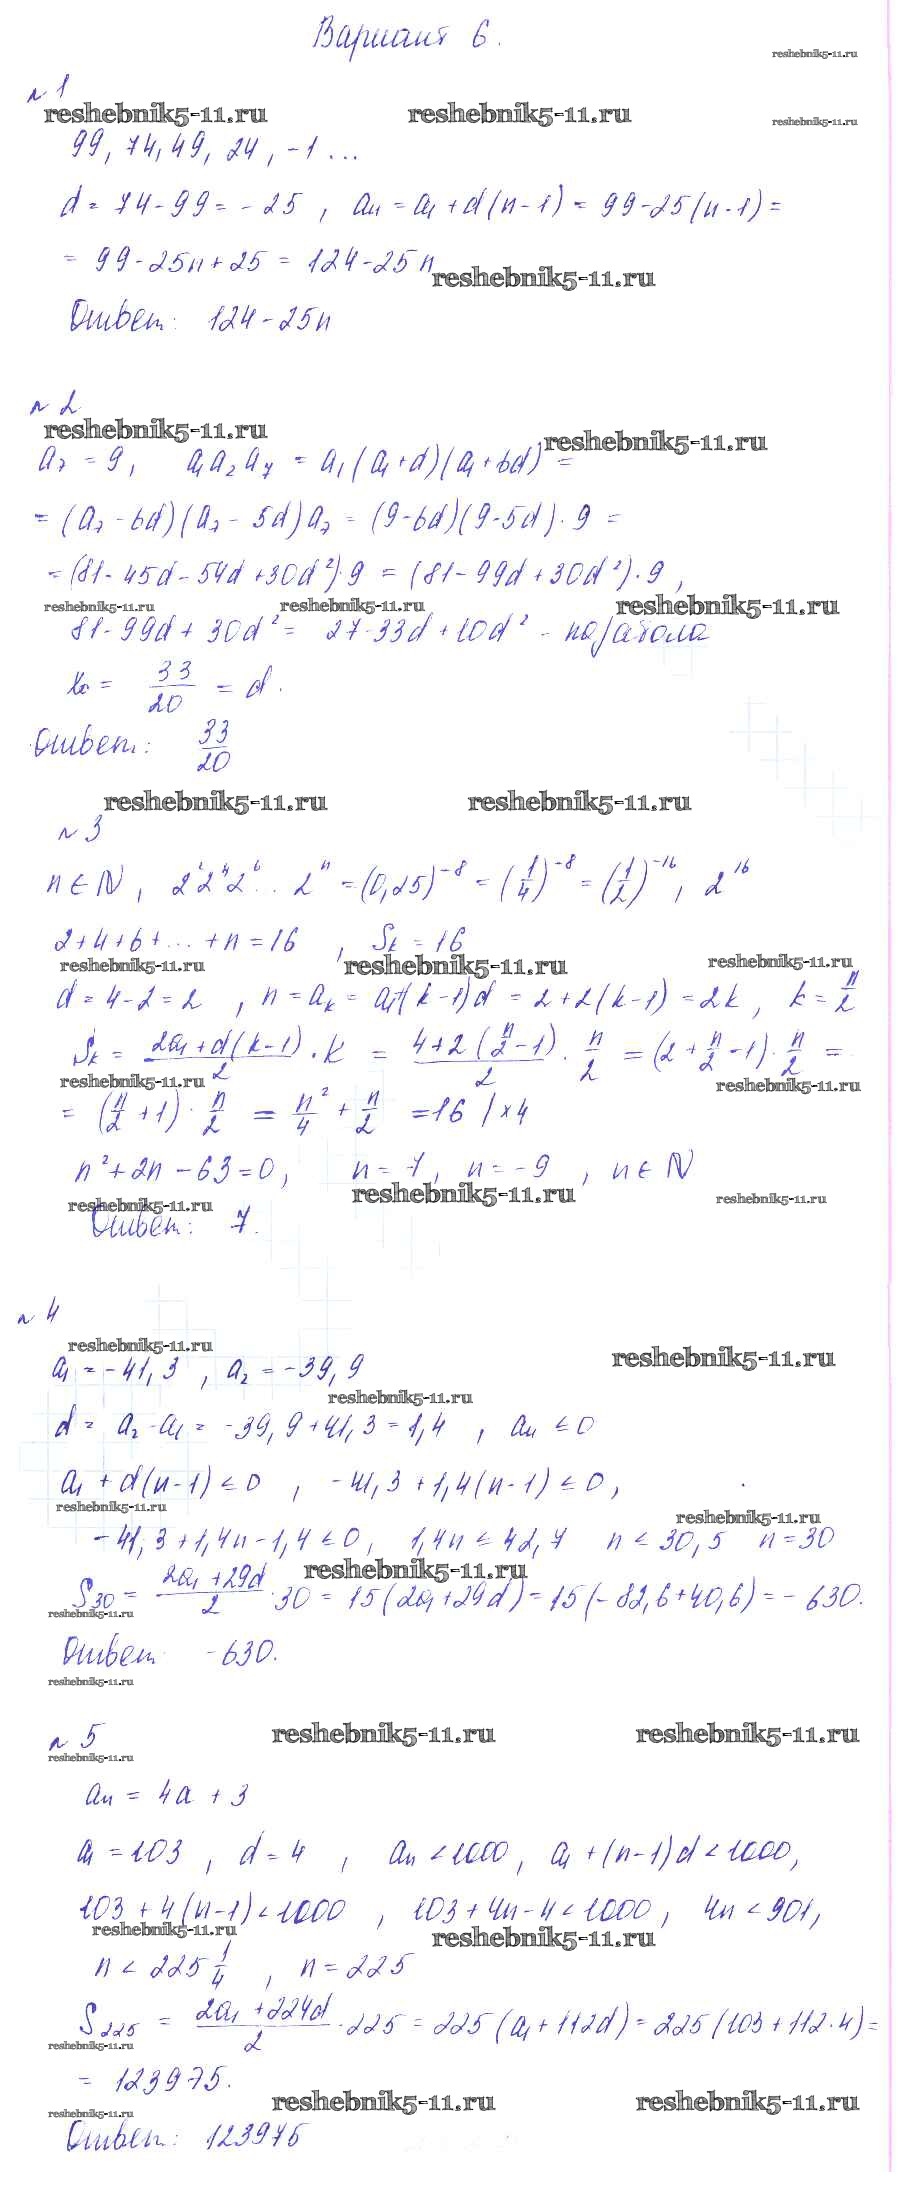 Вариант 6.
reshebnik5-11.ru
№ 1
reshebnik5-11.ru reshebnik5-11.ru reshebnik5-11.ru
99, 74, 49, 24, -1 ...
d = 74 - 99 = - 25 , an = a1 + d(n-1) = 99 - 25(n-1) =
= 99 - 25n + 25 = 124 - 25n
reshebnik5-11.ru
Ответ: 124 - 25n
№ 2
reshebnik5-11.ru reshebnik5-11.ru
a7 = 9, a1 a2 a7 = a1 (a1+d)(a1+6d) =
= (a7 - 6d)(a7 - 5d) a7 = (9-6d)(9-5d)·9 =
= (81 - 45d - 54d + 30d²)·9 = (81 - 99d + 30d²)·9,
reshebnik5-11.ru reshebnik5-11.ru reshebnik5-11.ru
81 - 99d + 30d² = 27 - 33d + 10d² - парабола
x0 = 33/20 = d.
Ответ: 33/20
reshebnik5-11.ru reshebnik5-11.ru
№ 3
n ∈ N, 2² 2⁴ 2⁶ ... 2ⁿ = (0,25)⁻⁸ = (1/4)⁻⁸ = (1/2)⁻¹⁶, 2¹⁶
2+4+6+...+n = 16 , Sk = 16
reshebnik5-11.ru reshebnik5-11.ru reshebnik5-11.ru
d = 4-2 = 2 , n = ak = a1+(k-1)d = 2+2(k-1) = 2k, k = n/2
Sk = (2a1+d(k-1))/2 · k = (4+2(n/2-1))/2 · n/2 = (2+n/2-1)·n/2 =
reshebnik5-11.ru reshebnik5-11.ru
= (n/2+1)·n/2 = n²/4 + n/2 = 16 /×4
n²+2n-63=0, n = 7, n = -9 , n ∈ N
reshebnik5-11.ru reshebnik5-11.ru reshebnik5-11.ru
Ответ: 7.
№ 4
reshebnik5-11.ru reshebnik5-11.ru
a1 = -41,3 , a2 = -39,9
reshebnik5-11.ru
d = a2 - a1 = -39,9 + 41,3 = 1,4 , an ≤ 0
a1 + d(n-1) ≤ 0 , -41,3 + 1,4(n-1) ≤ 0,
reshebnik5-11.ru reshebnik5-11.ru
-41,3 + 1,4n - 1,4 ≤ 0, 1,4n ≤ 42,7 n ≤ 30,5 n = 30
reshebnik5-11.ru
S30 = (2a1+29d)/2 · 30 = 15(2a1+29d) = 15(-82,6+40,6) = -630.
reshebnik5-11.ru
Ответ -630.
reshebnik5-11.ru
№ 5
reshebnik5-11.ru reshebnik5-11.ru reshebnik5-11.ru
an = 4a + 3
a1 = 103 , d = 4 , an < 1000, a1 + (n-1)d < 1000,
103 + 4(n-1) < 1000 , 103 + 4n - 4 < 1000, 4n < 901,
reshebnik5-11.ru reshebnik5-11.ru
n < 225 1/4 , n = 225
S225 = (2a1+224d)/2 · 225 = 225(a1+112d) = 225(103+112·4) =
reshebnik5-11.ru
= 123975.
reshebnik5-11.ru reshebnik5-11.ru reshebnik5-11.ru
Ответ: 123975